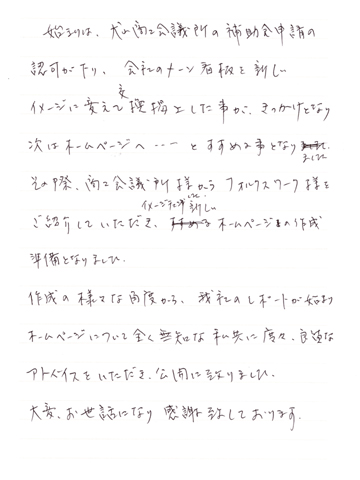 始まりは、犬山商工会議所の補助金申請の
認可がおり、会社のメーン看板を新しい
イメージに変えて挨拶文した事が、きっかけとなり
次はホームページへ……とすすめる事となりました。
その際、商工会議所様からフォルクスワーク様を
ご紹介していただき、イメージチェンジした新しいホームページの作成
準備となりました。
作成の様々な角度から、我社のレポートが始まり
ホームページについて全く無知な私共に度々、良質な
アドバイスをいただき、公開に致りました。
大変、お世話になり感謝致しております。